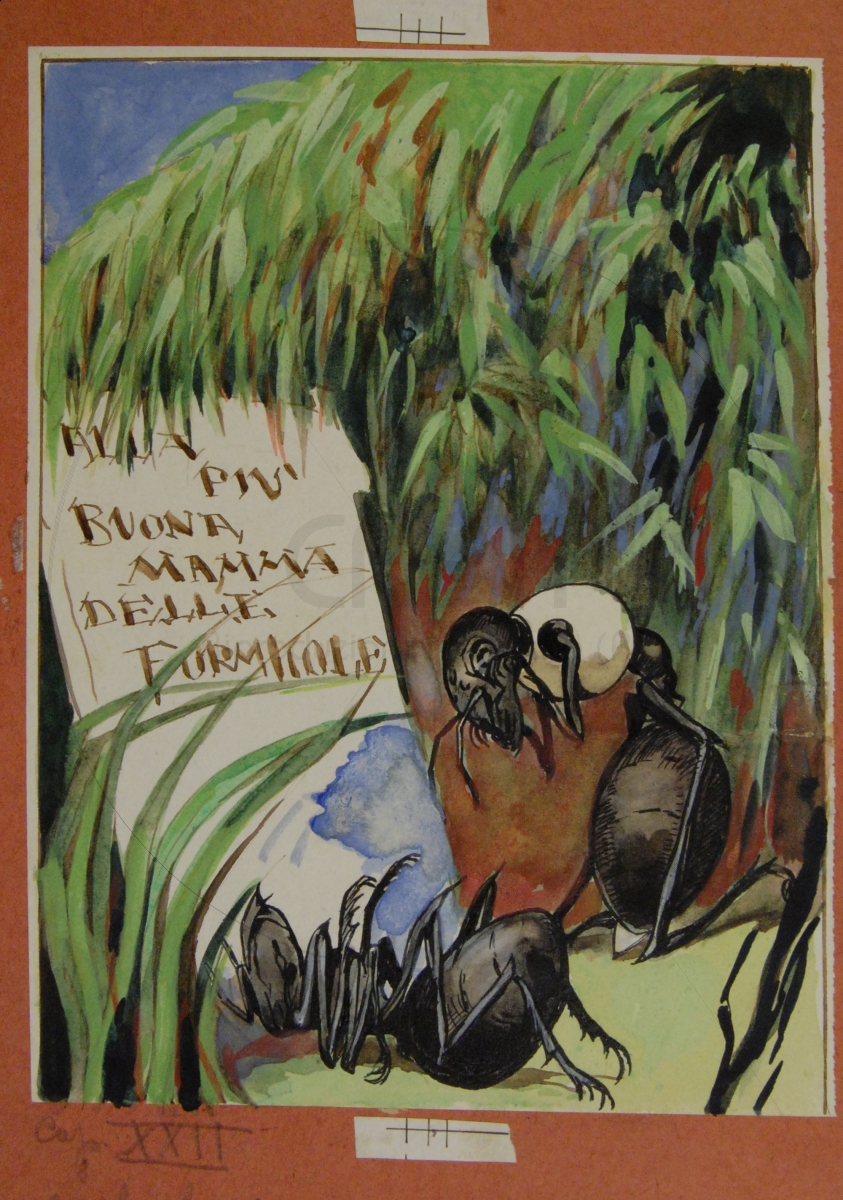 ALLA
PIU'
BUONA
MAMMA
DELLE
FORMICOLE
Cap. XXII